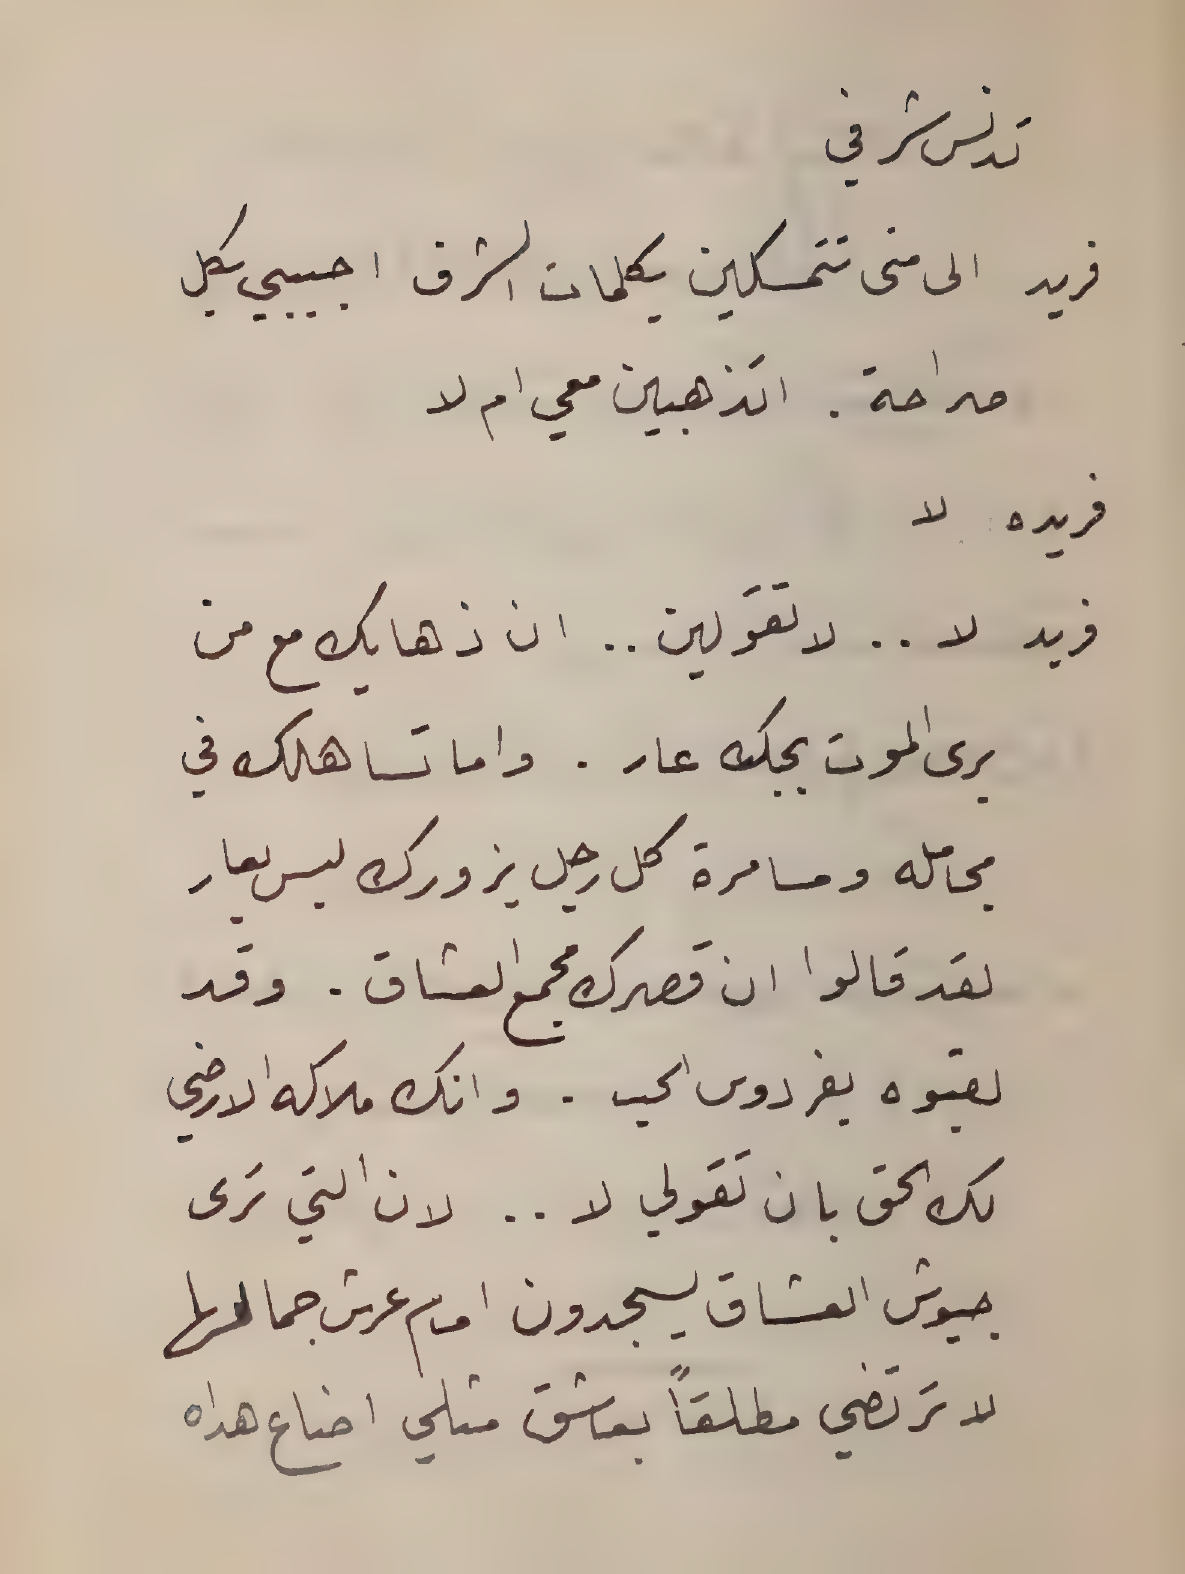 تدنس شرفي
فريد الى متى تتمسكين بكلمات الشرف اجيبيي بكل
صراحة . اتذهبين معي ام لا
فريده : لا
فريد لا .. لا تقولين .. ان ذهابك مع من
يرى الموت بحبك عار . واما تساهلك في
مجامله ومسامرة كل رجل يزورك ليس بعار
لقد قالوا ان قصرك مجمع العشاق . وقد
لقبوه بفردوس الحب . وانك ملاكه الارضي
لك الحق بان تقولي لا .. لان التي ترى
جيوش العشاق يسجدون امام عرش جمالها
لا ترتضي مطلقاً بعاشق مثلي اضاع هداه